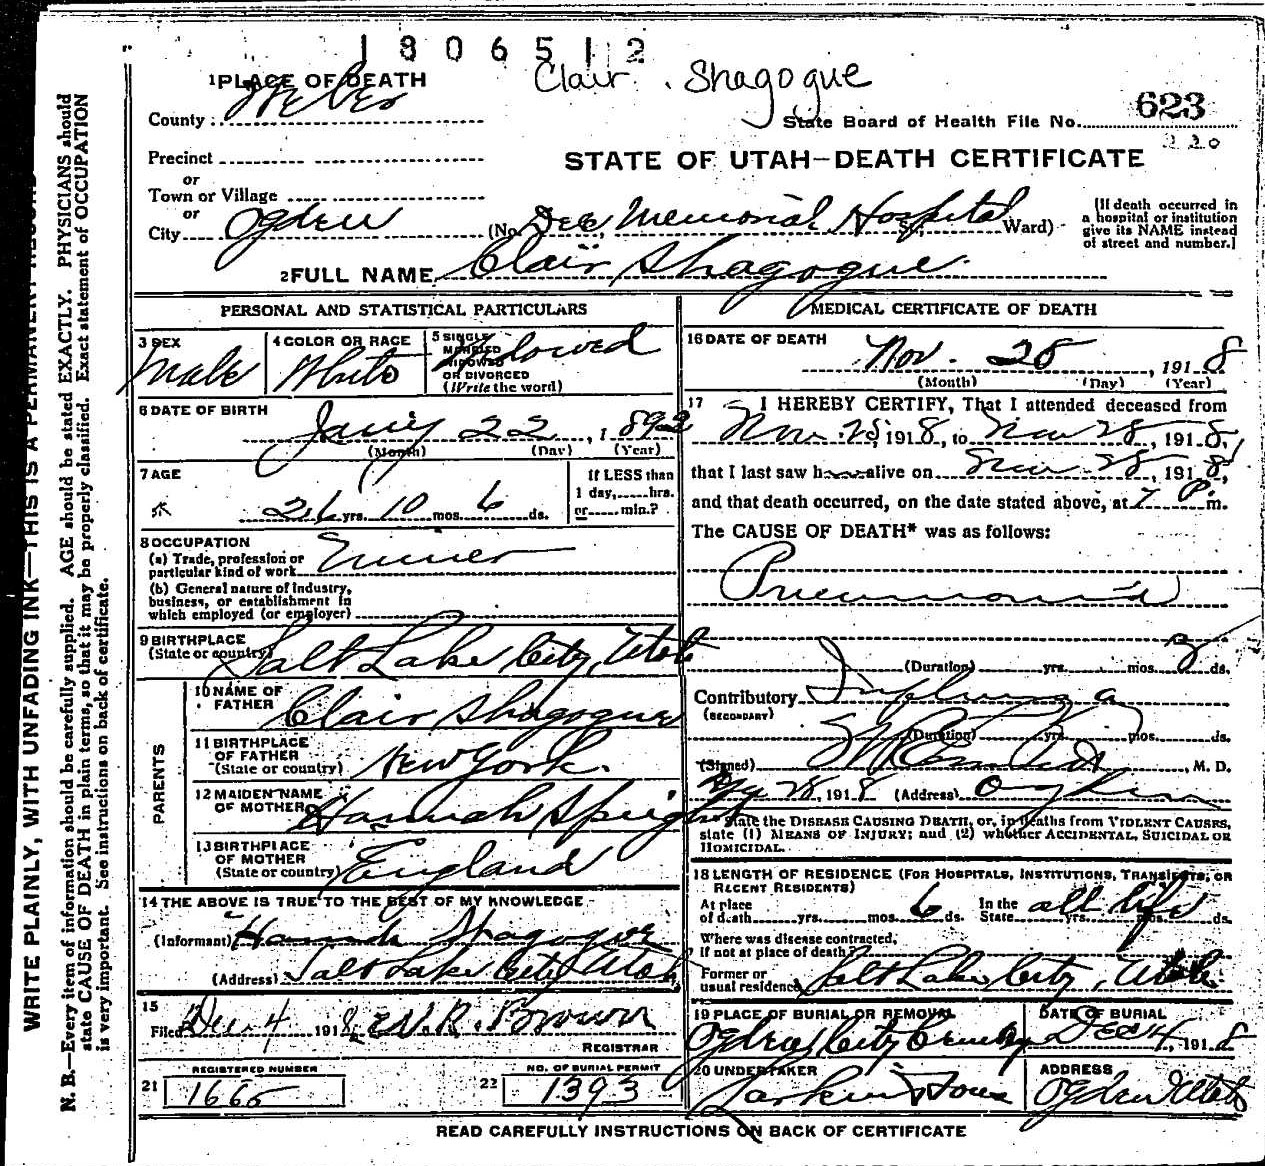 1806512
Clair Shagogue
1 PLACE OF DEATH
County: Weber
State Board of Health File No. 623
220
Precinct
or
Town or Village
or
City Ogden
STATE OF UTAH—DEATH CERTIFICATE
(No. Dee Memorial Hospital St., Ward)
[If death occurred in
a hospital or institution
give its NAME instead
of street and number.]
2 FULL NAME Clair Shagogue
PERSONAL AND STATISTICAL PARTICULARS
3 SEX
Male
4 COLOR OR RACE
White
5 SINGLE
MARRIED
WIDOWED
OR DIVORCED
(Write the word)
Widowed
6 DATE OF BIRTH
Jany 22, 1892
(Month) (Day) (Year)
7 AGE
26 yrs. 10 mos. 6 ds.
If LESS than
1 day, hrs.
or min.?
8 OCCUPATION
(a) Trade, profession or
particular kind of work
(b) General nature of industry,
business, or establishment in
which employed (or employer)
9 BIRTHPLACE
(State or country) Salt Lake City, Utah
PARENTS
10 NAME OF
FATHER Clair Shagogue
11 BIRTHPLACE
OF FATHER
(State or country) New York.
12 MAIDEN NAME
OF MOTHER Hannah Spright
13 BIRTHPLACE
OF MOTHER
(State or country) England
14 THE ABOVE IS TRUE TO THE BEST OF MY KNOWLEDGE
(Informant) Hannah Shagogue
(Address) Salt Lake City Utah
15
Filed Dec. 4 1918 W. R. Brown
REGISTRAR
21 REGISTERED NUMBER
1665
22 NO. OF BURIAL PERMIT
1393
MEDICAL CERTIFICATE OF DEATH
16 DATE OF DEATH
Nov. 28, 1918
(Month) (Day) (Year)
17 I HEREBY CERTIFY, That I attended deceased from
Nov. 25, 1918, to Nov 28, 1918,
that I last saw h alive on Nov 28, 1918,
and that death occurred, on the date stated above, at 7 P.m.
The CAUSE OF DEATH* was as follows:
Pneumonia
(Duration) yrs. mos. 3 ds.
Contributory Influenza
(SECONDARY)
(Duration) yrs. mos. ds.
(Signed) , M. D.
28, 1918 (Address) Ogden
State the DISEASE CAUSING DEATH, or, in deaths from VIOLENT CAUSES,
state (1) MEANS OF INJURY; and (2) whether ACCIDENTAL, SUICIDAL OR
HOMICIDAL.
18 LENGTH OF RESIDENCE (FOR HOSPITALS, INSTITUTIONS, TRANSIENTS, OR
RECENT RESIDENTS)
At place
of death yrs. mos. 6 ds.
In the
State all life yrs. mos. ds.
Where was disease contracted,
if not at place of death?
Former or
usual residence Salt Lake City, Utah
19 PLACE OF BURIAL OR REMOVAL
Ogden City Cemetery
DATE OF BURIAL
Dec 4, 1918
20 UNDERTAKER
Larkin & Sons
ADDRESS
Ogden Utah
READ CAREFULLY INSTRUCTIONS ON BACK OF CERTIFICATE
WRITE PLAINLY, WITH UNFADING INK—THIS IS A PERMANENT RECORD
N. B.—Every item of information should be carefully supplied. AGE should be stated EXACTLY. PHYSICIANS should
state CAUSE OF DEATH in plain terms, so that it may be properly classified. Exact statement of OCCUPATION
is very important. See instructions on back of certificate.